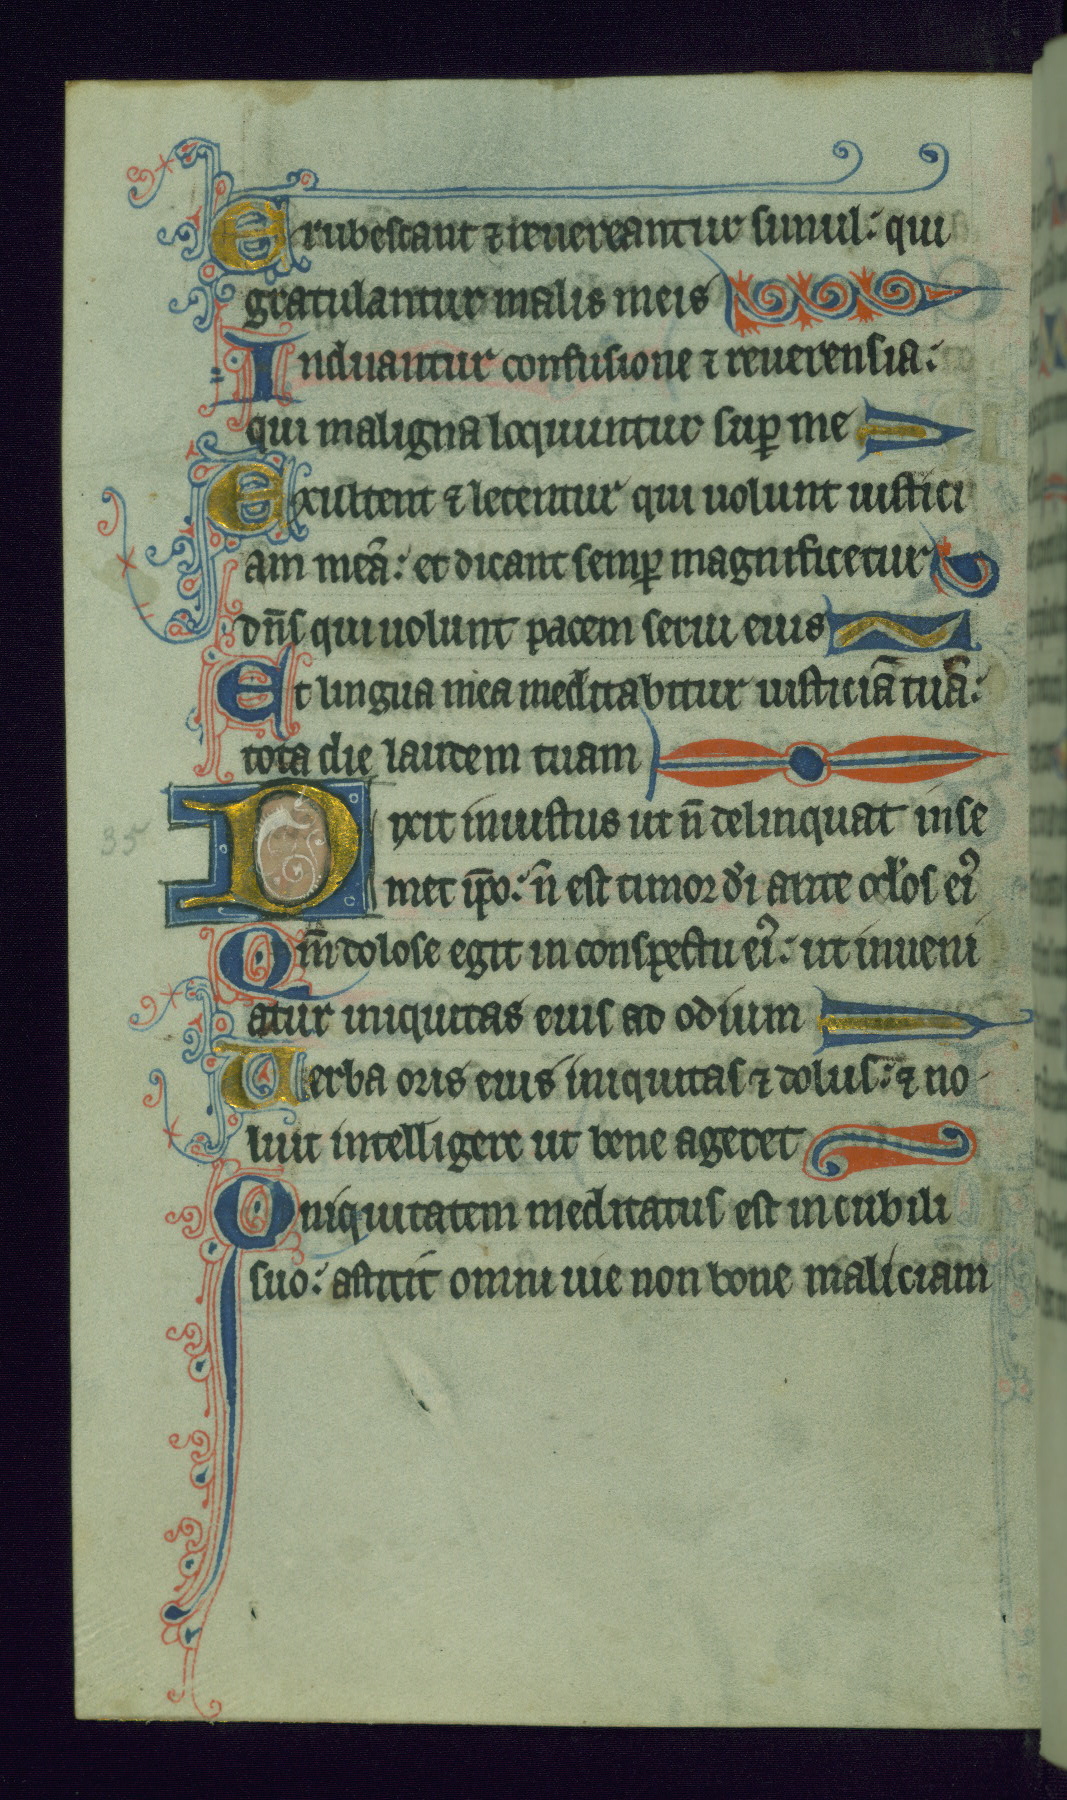 Erubescant ⁊ reuereantur simul: qui
gratulantur malis meis
Induantur confusione ⁊ reuerensia:
qui maligna loquuntur suꝑ me
Exultent ⁊ letentur qui uolunt iustici
am meā: et dicant semꝑ magnificetur
dn̄s qui uolunt pacem serui eius
Et lingua mea meditabitur iusticiā tuā:
tota die laudem tuam
35
Dixit iniustus ut n̄ delinquat in se
met ip̄o: n̄ est timor d̓i ante ocl̓os ei᾿
Qm̄ dolose egit in conspectu ei᾿: ut inueni
atur iniquitas eius ad odium
Uerba oris eius iniquitas ⁊ dolus: ⁊ no
luit intelligere ut bene ageret
Qniquitatem meditatus est in cubili
suo: astitit omni uie non bone maliciam